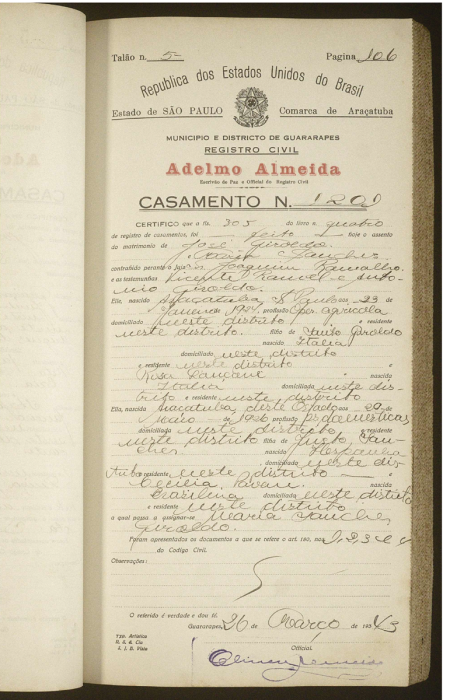 Talão n. 5 Pagina 106
Republica dos Estados Unidos do Brasil
Estado de SÃO PAULO Comarca de Araçatuba
MUNICIPIO E DISTRICTO DE GUARARAPES
REGISTRO CIVIL
Adelmo Almeida
Escrivão de Paz e Official do Registro Civil
CASAMENTO N. 1.201
CERTIFICO que a fls. 305 do livro n. quatro
de registro de casamentos, foi feito hoje o assento
do matrimonio de José Giroldo
Sanches
contrahido perante o Joaquim
e as testemunhas Vicente e Anto-
nio Giroldo.
Elle, nascido Araçatuba, S. Paulo aos 23 de
Janeiro profissão agricola
domiciliado neste distrito e residente
neste distrito. filho de Giroldo
nascido Italia
domiciliado neste distrito
e residente neste distrito
e Rosa nascida
Italia domiciliada neste dis-
trito e residente neste distrito
Ella, nascida Araçatuba, deste Estado aos 20 de
Maio de 1926 profissão domesticas
domiciliada neste distrito e residente
neste distrito filha de Justo San-
ches nascido Hespanha
domiciliado neste dis-
trito e residente neste distrito e
Cecilia nascida
brasileira domiciliada neste distrito
e residente neste distrito
a qual passa a assignar-se Maria Sanches
Giroldo.
Foram apresentados os documentos a que se refere o art. 180, nos 1, 2, 3 e 4
do Codigo Civil.
Observações:
O referido é verdade e dou fé.
Guararapes, 26 de Março de 1943
Typ. Artistica
Official.